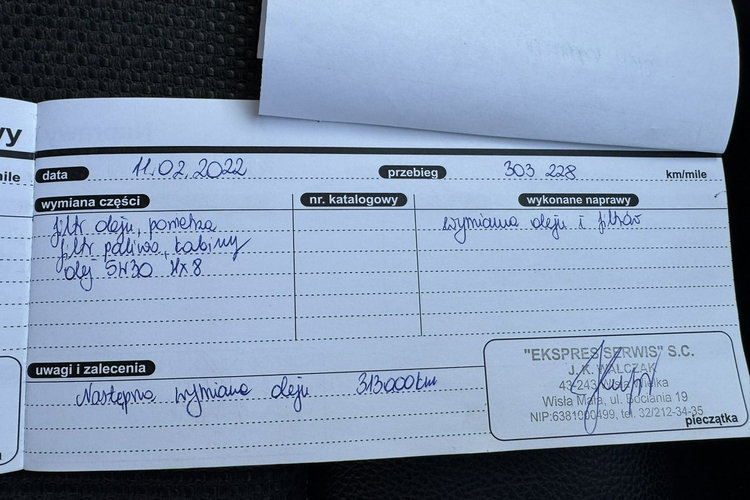 vy
ile
data 11.02.2022 przebieg 303 228 km/mile
wymiana części nr. katalogowy wykonane naprawy
filtr oleju, powietrza wymiana oleju i filtrów
filtr paliwa, kabiny
olej 5W30 HX8
uwagi i zalecenia
Następna wymiana oleju 313000km
"EKSPRES SERWIS" S.C.
J. K. WALCZAK
43-243
Wisła Mała, ul. Bociania 19
NIP:6381000499, tel. 32/212-34-35
pieczątka